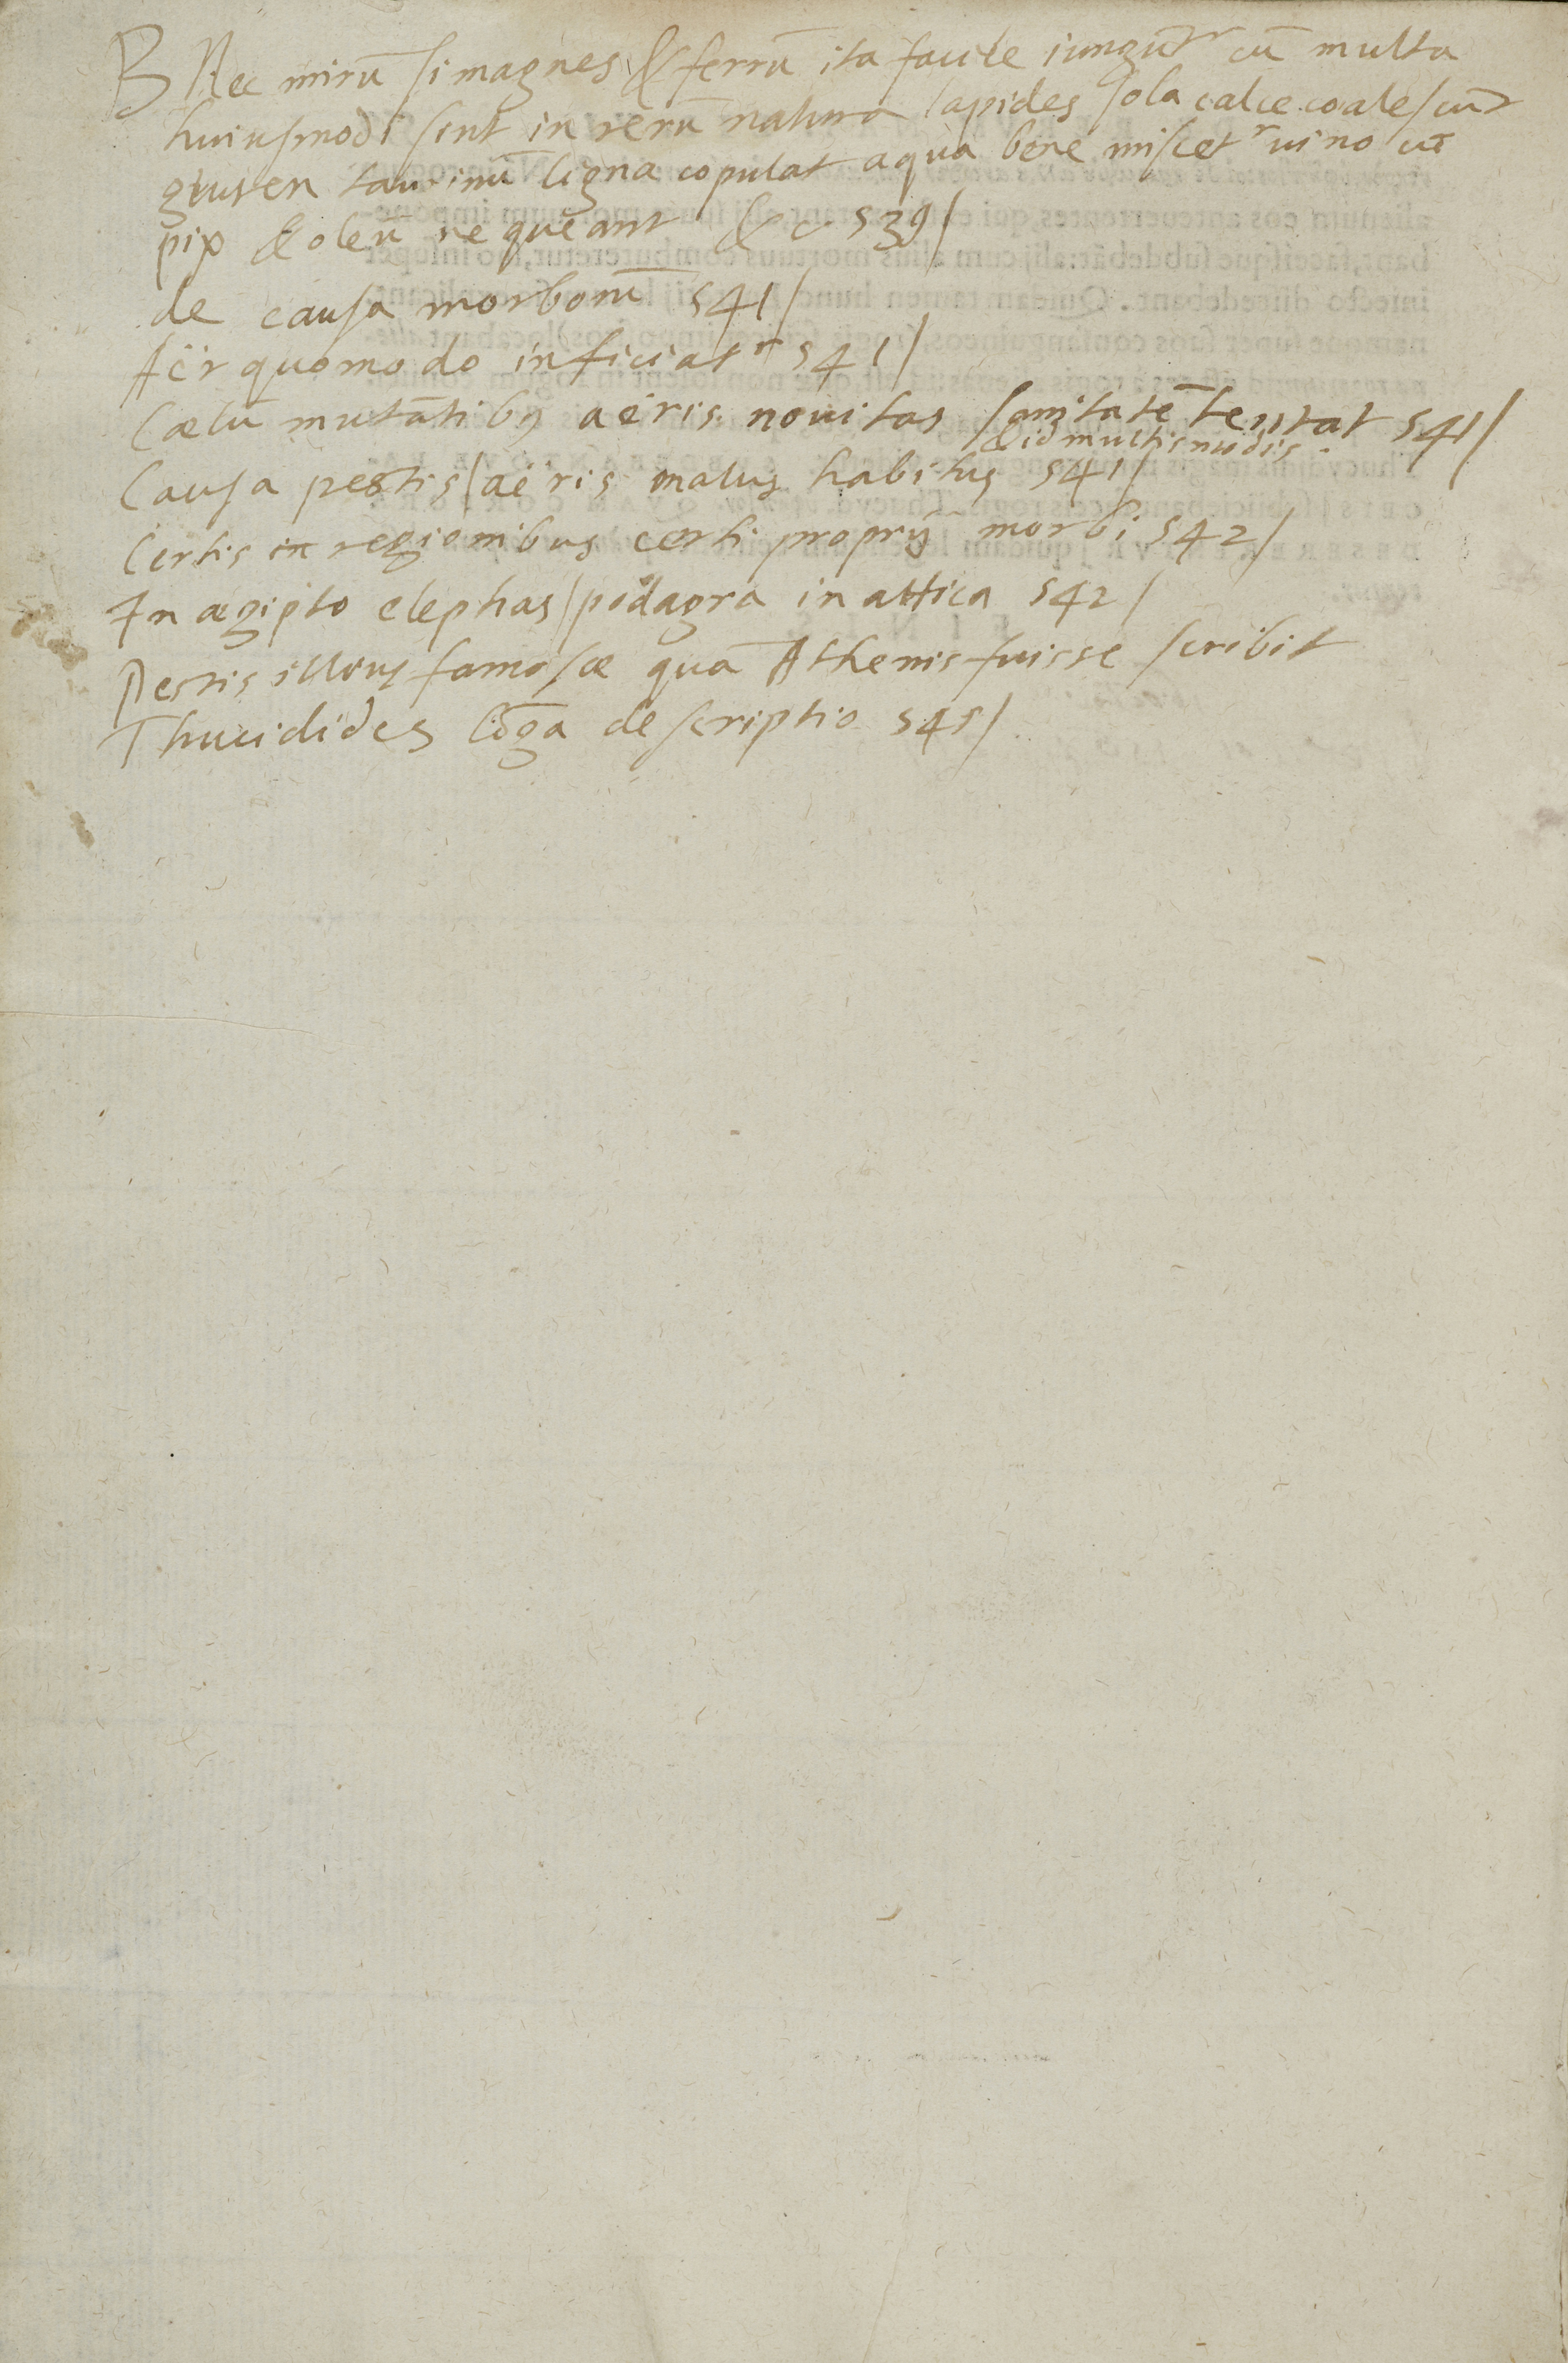 B Nec mirū si magnes & ferrū ita facile iungūtr cū multa
huiusmodi sint in rerū natura lapides sola calce coalescūt
gluten taurinū ligna copulat aqua bene miscetr uino cū
pix & oleū nequeant &c 539/
de causa morborū 541/
Aër quomodo inficiatr 541/
Cælū mutātibꝰ aëris nouitas sanitatē tentat 541/
& id multis modis.
Causa pestis/aëris malus habitus 541/
Certis in regionibus certi proprij morbi 542/
In ægipto elephas/podagra in attica 542/
Pestis illius famosæ quā Athenis fuisse scribit
Thucidides lōga descriptio 545/